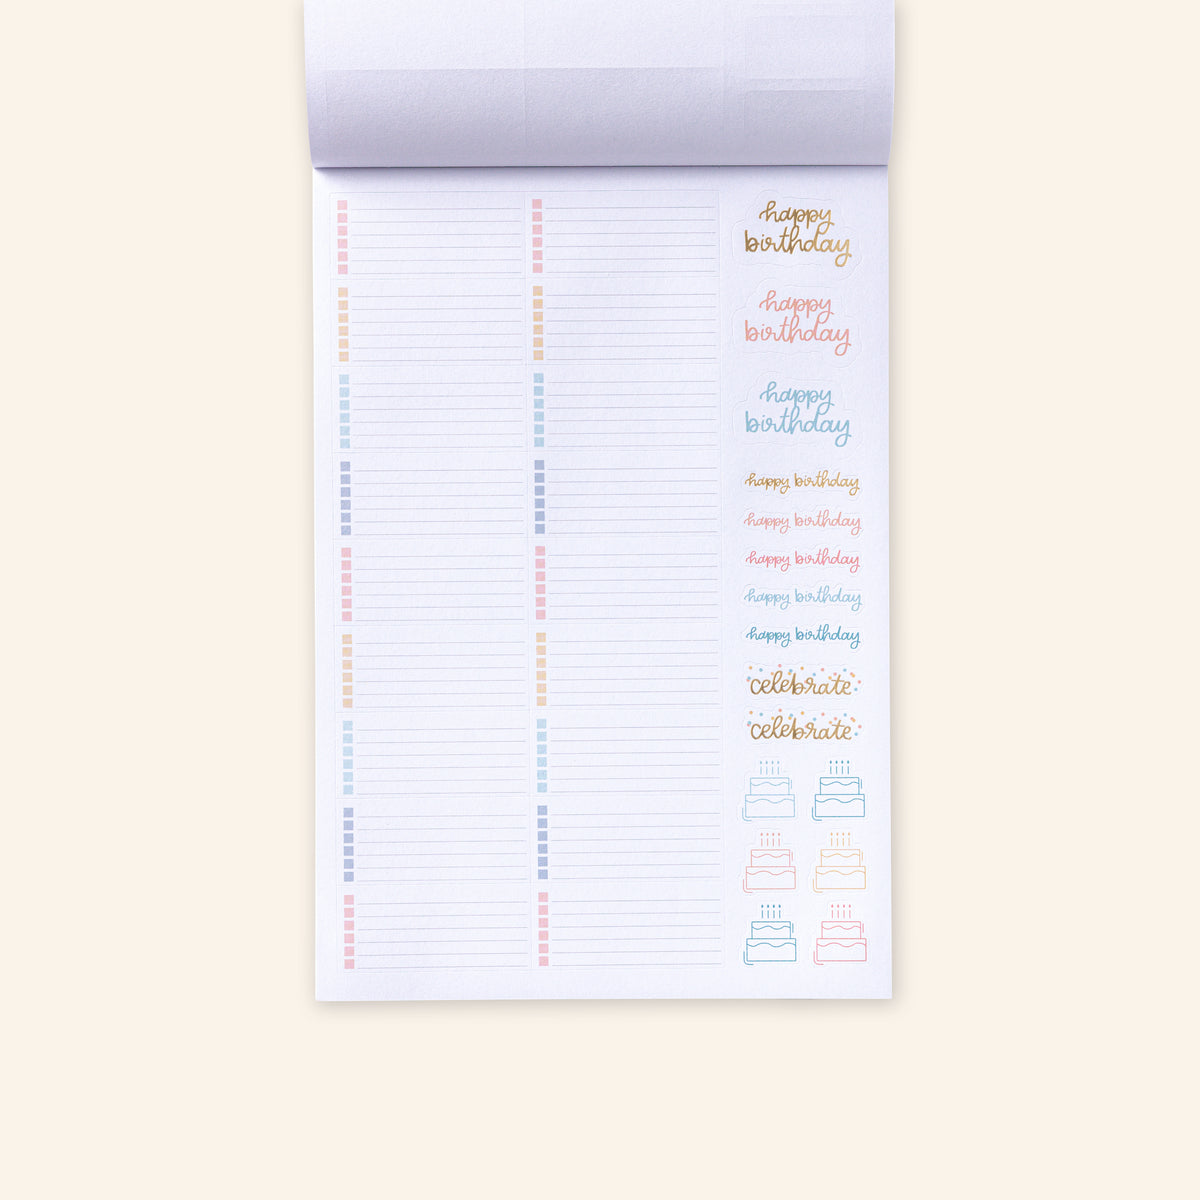 happy
birthday
happy
birthday
happy
birthday
happy birthday
happy birthday
happy birthday
happy birthday
happy birthday
celebrate
celebrate